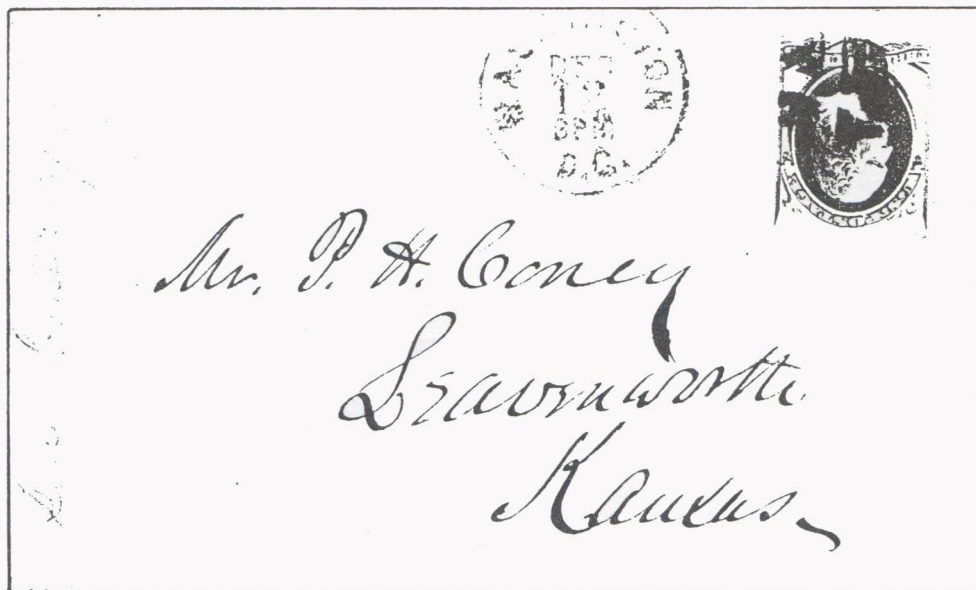 WASHINGTON
DEC
6PM
D.C.
Mr. P. H. Coney
Leavenworth
Kansas